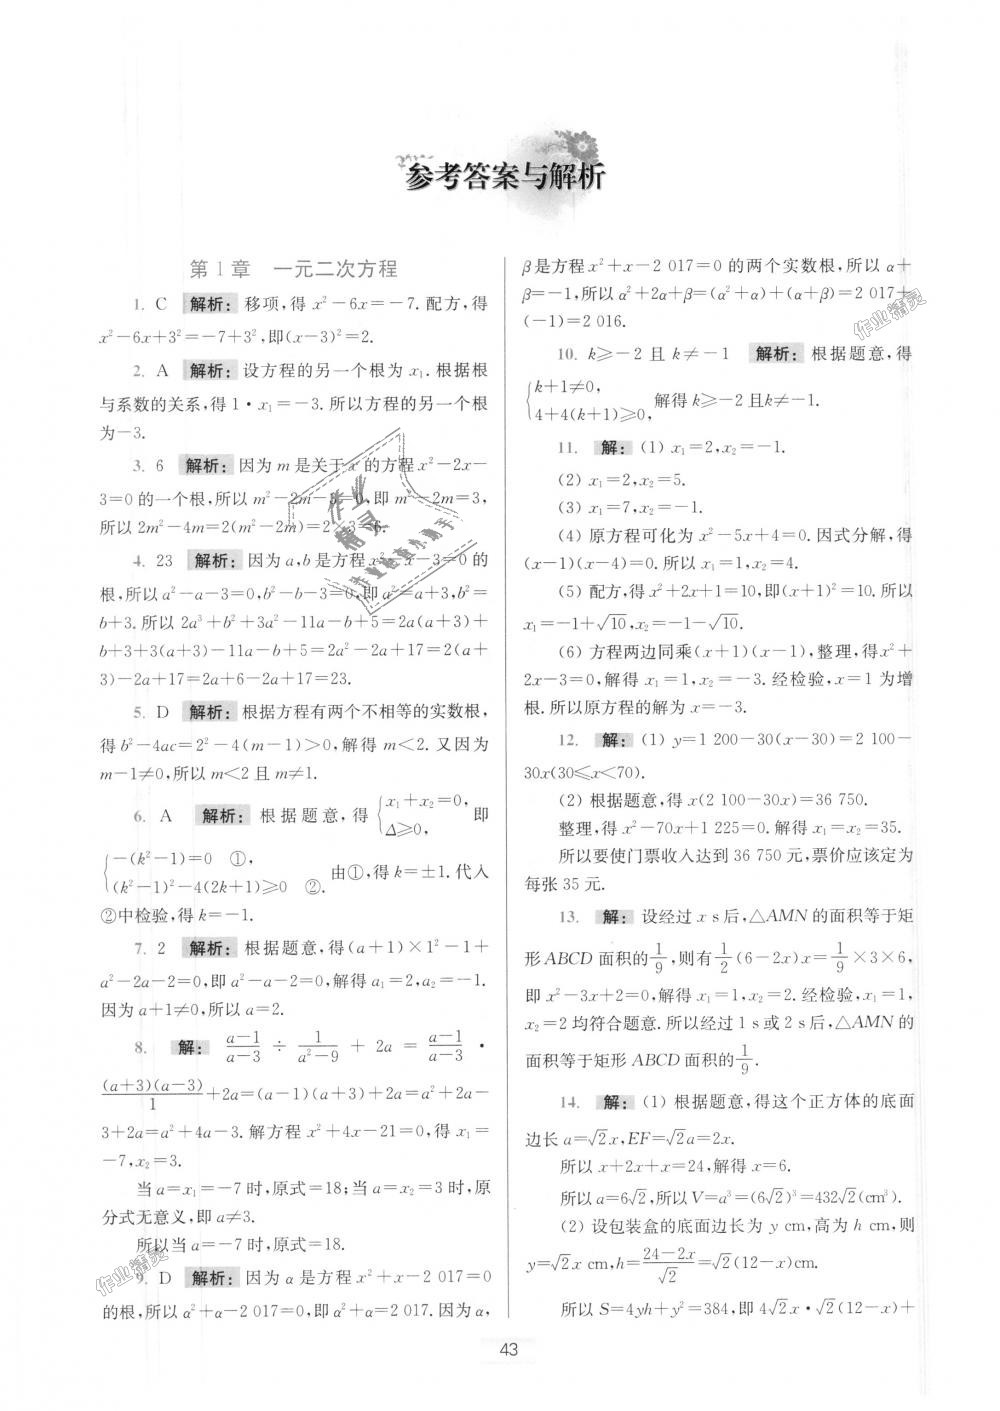 参考答案与解析
第1章 一元二次方程
1. C 解析: 移项,得 x²-6x=-7. 配方,得
x²-6x+3²=-7+3²,即(x-3)²=2.
2. A 解析: 设方程的另一个根为 x₁. 根据根
与系数的关系,得 1·x₁=-3. 所以方程的另一个根
为-3.
3. 6 解析: 因为 m 是关于 x 的方程 x²-2x-
3=0 的一个根,所以 m²-2m-3=0,即 m²-2m=3,
所以 2m²-4m=2(m²-2m)=2×3=6.
4. 23 解析: 因为 a,b 是方程 x²-x-3=0 的
根,所以 a²-a-3=0,b²-b-3=0,即 a²=a+3,b²=
b+3. 所以 2a³+b²+3a²-11a-b+5=2a(a+3)+
b+3+3(a+3)-11a-b+5=2a²-2a+17=2(a+
3)-2a+17=2a+6-2a+17=23.
5. D 解析: 根据方程有两个不相等的实数根,
得 b²-4ac=2²-4(m-1)>0,解得 m<2. 又因为
m-1≠0,所以 m<2 且 m≠1.
6. A 解析: 根据题意,得 {x₁+x₂=0, Δ≥0, 即
{-(k²-1)=0 ①, (k²-1)²-4(2k+1)≥0 ②. 由①,得 k=±1. 代入
②中检验,得 k=-1.
7. 2 解析: 根据题意,得(a+1)×1²-1+
a²-2a-2=0,即 a²-a-2=0,解得 a₁=2,a₂=-1.
因为 a+1≠0,所以 a=2.
8. 解: (a-1)/(a-3) ÷ 1/(a²-9) + 2a = (a-1)/(a-3) ·
(a+3)(a-3)/1 +2a=(a-1)(a+3)+2a=a²+2a-
3+2a=a²+4a-3. 解方程 x²+4x-21=0,得 x₁=
-7,x₂=3.
当 a=x₁=-7 时,原式=18;当 a=x₂=3 时,原
分式无意义,即 a≠3.
所以当 a=-7 时,原式=18.
9. D 解析: 因为 α 是方程 x²+x-2 017=0
的根,所以 α²+α-2 017=0,即 α²+α=2 017. 因为 α,
β 是方程 x²+x-2 017=0 的两个实数根,所以 α+
β=-1,所以 α²+2α+β=(α²+α)+(α+β)=2 017+
(-1)=2 016.
10. k≥-2 且 k≠-1 解析: 根据题意,得
{k+1≠0, 4+4(k+1)≥0, 解得 k≥-2 且 k≠-1.
11. 解: (1) x₁=2,x₂=-1.
(2) x₁=2,x₂=5.
(3) x₁=7,x₂=-1.
(4) 原方程可化为 x²-5x+4=0. 因式分解,得
(x-1)(x-4)=0. 所以 x₁=1,x₂=4.
(5) 配方,得 x²+2x+1=10,即(x+1)²=10. 所以
x₁=-1+√10,x₂=-1-√10.
(6) 方程两边同乘(x+1)(x-1),整理,得 x²+
2x-3=0,解得 x₁=1,x₂=-3. 经检验,x=1 为增
根. 所以原方程的解为 x=-3.
12. 解: (1) y=1 200-30(x-30)=2 100-
30x(30≤x<70).
(2) 根据题意,得 x(2 100-30x)=36 750.
整理,得 x²-70x+1 225=0. 解得 x₁=x₂=35.
所以要使门票收入达到 36 750 元,票价应该定为
每张 35 元.
13. 解: 设经过 x s 后,△AMN 的面积等于矩
形 ABCD 面积的 1/9,则有 1/2(6-2x)x=1/9×3×6,
即 x²-3x+2=0,解得 x₁=1,x₂=2. 经检验,x₁=1,
x₂=2 均符合题意. 所以经过 1 s 或 2 s 后,△AMN 的
面积等于矩形 ABCD 面积的 1/9.
14. 解: (1) 根据题意,得这个正方体的底面
边长 a=√2x,EF=√2a=2x.
所以 x+2x+x=24,解得 x=6.
所以 a=6√2,所以 V=a³=(6√2)³=432√2(cm³).
(2) 设包装盒的底面边长为 y cm,高为 h cm,则
y=√2x cm,h=(24-2x)/√2=√2(12-x)cm.
所以 S=4yh+y²=384,即 4√2x·√2(12-x)+
43
作业精灵
作业精灵
作业精灵
作业检查小助手